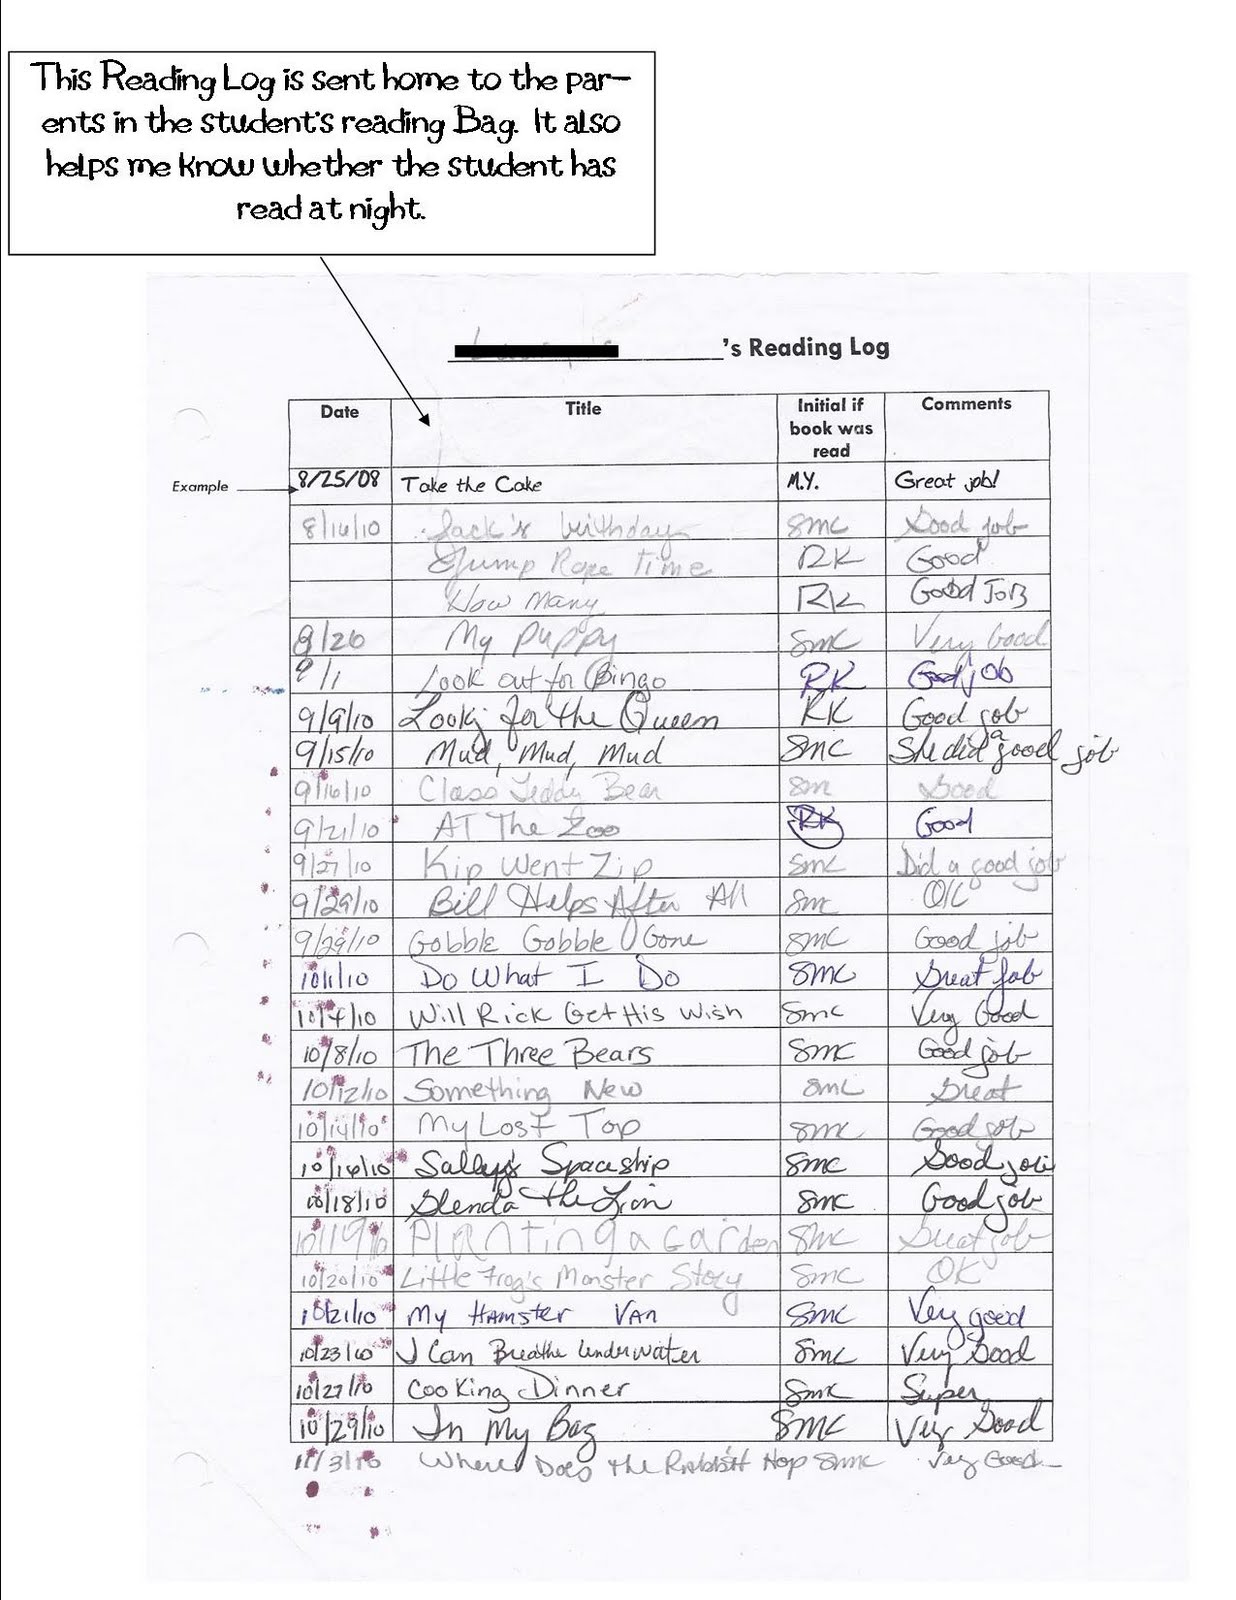 This Reading Log is sent home to the par-
ents in the student's reading Bag. It also
helps me know whether the student has
read at night.
's Reading Log
Date Title Initial if book was read Comments
Example 8/25/08 Take the Cake M.Y. Great job!
8/16/10 Jack's birthday SMC Good job
Jump Rope Time RK Good
How Many RK Good JOB
8/26 My Puppy SMC Very Good
9/1 Look out for Bingo RK Good job
9/9/10 Looking for the Queen RK Good job
9/15/10 Mud, Mud, Mud SMC She did a good job
9/16/10 Class Teddy Bear SM Good
9/21/10 AT The Zoo RK Good
9/27/10 Kip Went Zip SMC Did a good job
9/29/10 Bill Helps After All SMC OK
9/29/10 Gobble Gobble Gone SMC Good job
10/1/10 Do What I Do SMC Great job
10/4/10 Will Rick Get His Wish SMC Very Good
10/8/10 The Three Bears SMC Good job
10/12/10 Something New SMC Great
10/14/10 My Lost Top SMC Good job
10/16/10 Sally's Spaceship SMC Good job
10/18/10 Glenda the Lion SMC Good job
10/19/10 Planting a Garden SMC Great job
10/20/10 Little Frog's Monster Story SMC OK
10/21/10 My HAMSTER VAN SMC Very good
10/23/10 I Can Breathe Underwater SMC Very Good
10/27/10 Cooking Dinner SMC Super
10/29/10 In My Bag SMC Very Good
11/3/10 Where Does the Rabbit Hop SMC Very Good